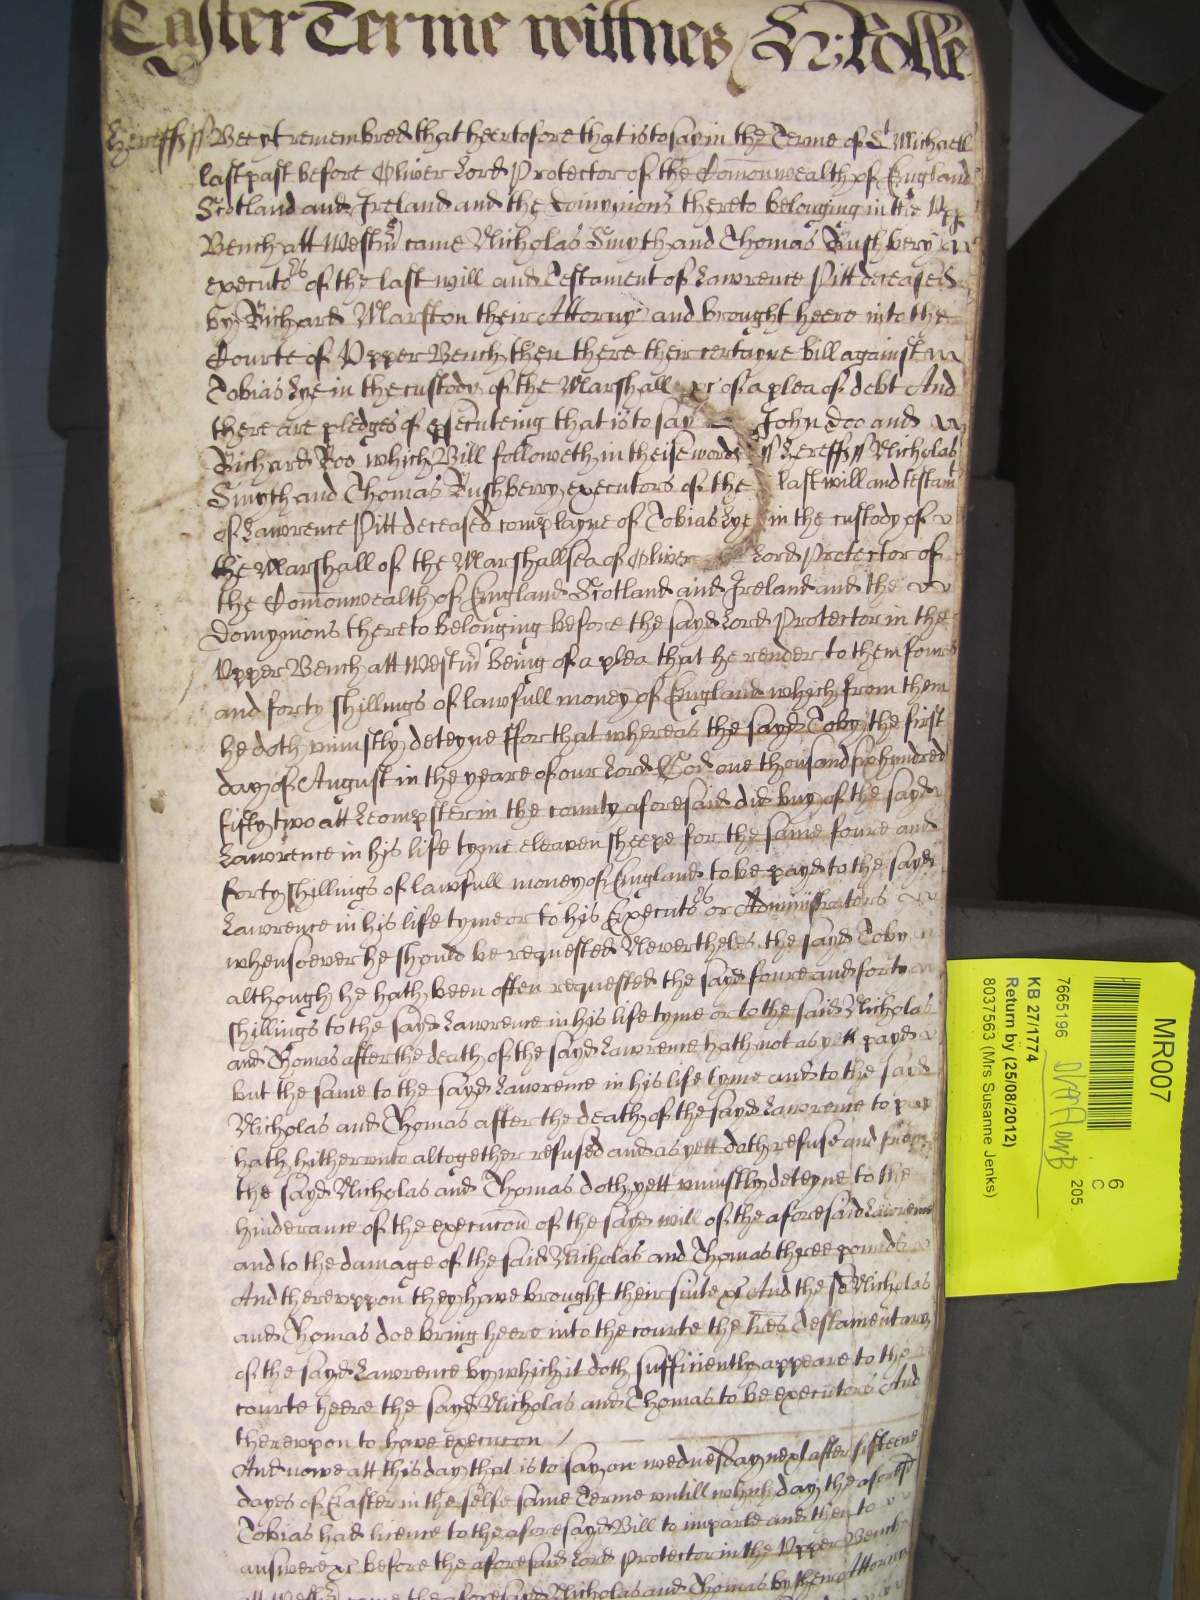 Easter Terme wittnes H: Rolle
Hereff ss Bee yt remembred that heertofore that is to say in the Terme of St Michaell
last past before Oliver Lord Protector of the Comonwealth of England
Scotland and Ireland and the domynions thereto belonging in the Upp
Bench att Westm came Nicholas Smyth and Thomas Rushbery
executors of the last will and Testament of Lawrence Pitt deceased
by Richard Marston their Attorny and brought heere into the
Courte of Upper Bench then there their certayne bill against
Tobias Lye in the custody of the Marshall &c of a plea of debt And
there are pledges of psecuteing that is to say John Doo and
Richard Roo which Bill followeth in theise words ss Hereff ss Nicholas
Smyth and Thomas Rushberry executors of the last will and testamt
of Lawrence Pitt deceased complayne of Tobias Lye in the custody of
the Marshall of the Marshallsea of Oliver Lord Protector of
the Comonwealth of England Scotland and Ireland and the
Domynions thereto belonging before the sayd Lord Protector in the
Upper Bench att Westm being of a plea that he render to them foure
and forty shillings of lawfull money of England which from them
he doth uniustly deteyne ffor that whereas the sayd Toby the first
day of August in the yeare of our Lord God one thousand six hundred
fifty two att Leompster in the county aforesaid did buy of the sayd
Lawrence in his life tyme eleaven sheepe for the same foure and
forty shillings of lawfull money of England to be payd to the sayd
Lawrence in his life tyme or to his Executors or Administrators
whensoever he should be requested Neverthelesse the sayd Toby
although he hath been often requested the sayd foure and forty
shillings to the sayd Lawrence in his life tyme or to the said Nicholas
and Thomas after the death of the sayd Lawrence hath not as yett payd
but the same to the sayd Lawrence in his life tyme and to the sayd
Nicholas and Thomas after the death of the sayd Lawrence to pay
hath hitherunto altogether refused and as yett doth refuse and from
the sayd Nicholas and Thomas doth yett uniustly deteyne to the
hinderance of the execucon of the sayd will of the aforesaid Lawrence
and to the damage of the said Nicholas and Thomas three pounds
And thereuppon they have brought their suite &c And the sd Nicholas
and Thomas doe bring heere into the courte the lres Testamentary
of the sayd Lawrence by which it doth sufficiently appeare to the
courte heere the sayd Nicholas and Thomas to be executors And
thereupon to have execucon
And nowe att this day that is to say on wednesday next after fifteene
dayes of Easter in the selfe same Terme untill which day the aforesd
Tobias had licence to the aforesayd Bill to imparle and then to
answere &c before the aforesaid Lord Protector in the Upper Bench
att Westm came the aforesayd Nicholas and Thomas by their Attorny
MR007
6
C
205.
7665196
KB 27/1774
Return by (25/08/2012)
8037563 (Mrs Susanne Jenks)